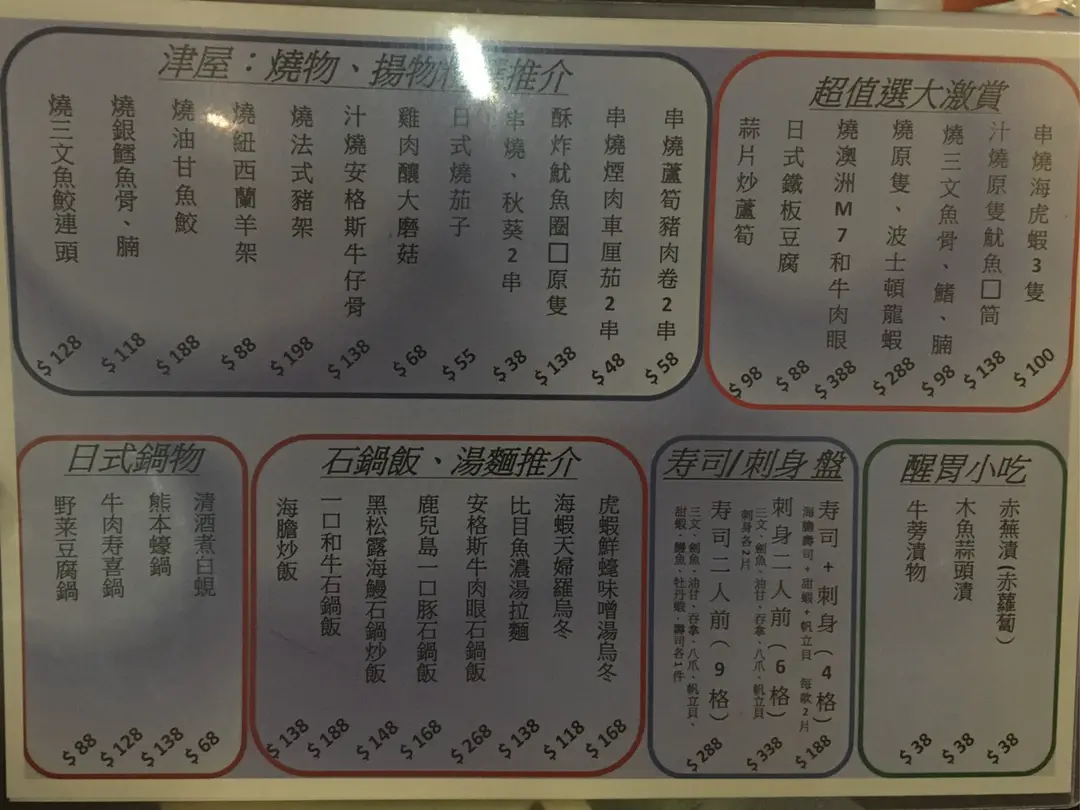 津屋：燒物、揚物推介
串燒蘆筍豬肉卷2串
$58
串燒煙肉車厘茄2串
$48
酥炸魷魚圈□原隻
$138
串燒、秋葵2串
$38
日式燒茄子
$55
雞肉釀大磨菇
$68
汁燒安格斯牛仔骨
$138
燒法式豬架
$198
燒紐西蘭羊架
$88
燒油甘魚鮫
$188
燒銀鱈魚骨、腩
$118
燒三文魚鮫連頭
$128
超值選大激賞
串燒海虎蝦3隻
$100
汁燒原隻魷魚□筒
$138
燒三文魚骨、鰭、腩
$98
燒原隻、波士頓龍蝦
$288
燒澳洲M7和牛肉眼
$388
日式鐵板豆腐
$88
蒜片炒蘆筍
$98
日式鍋物
清酒煮白蜆
$68
熊本蠔鍋
$138
牛肉寿喜鍋
$128
野菜豆腐鍋
$88
石鍋飯、湯麵推介
虎蝦鮮蟶味噌湯烏冬
$168
海蝦天婦羅烏冬
$118
比目魚濃湯拉麵
$138
安格斯牛肉眼石鍋飯
$268
鹿兒島一口豚石鍋飯
$168
黑松露海鰻石鍋炒飯
$148
一口和牛石鍋飯
$188
海膽炒飯
$138
寿司/刺身 盤
寿司+刺身(4格)
海膽壽司+甜蝦+帆立貝 每款2片
$188
刺身二人前(6格)
三文、劍魚、油甘、吞拿、八爪、帆立貝
刺身各2片
$338
寿司二人前(9格)
三文、劍魚、油甘、吞拿、八爪、帆立貝、
甜蝦、鰻魚、牡丹蝦、壽司各1件
$288
醒胃小吃
赤蕪漬(赤蘿蔔)
$38
木魚蒜頭漬
$38
牛蒡漬物
$38